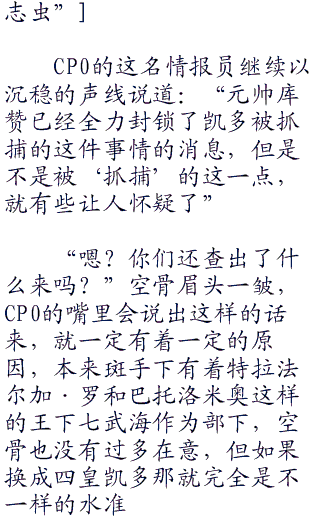 志虫”]
CP0的这名情报员继续以
沉稳的声线说道：“元帅库
赞已经全力封锁了凯多被抓
捕的这件事情的消息，但是
不是被‘抓捕’的这一点，
就有些让人怀疑了”
“嗯？你们还查出了什
么来吗？”空骨眉头一皱，
CP0的嘴里会说出这样的话
来，就一定有着一定的原
因，本来斑手下有着特拉法
尔加·罗和巴托洛米奥这样
的王下七武海作为部下，空
骨也没有过多在意，但如果
换成四皇凯多那就完全是不
一样的水准